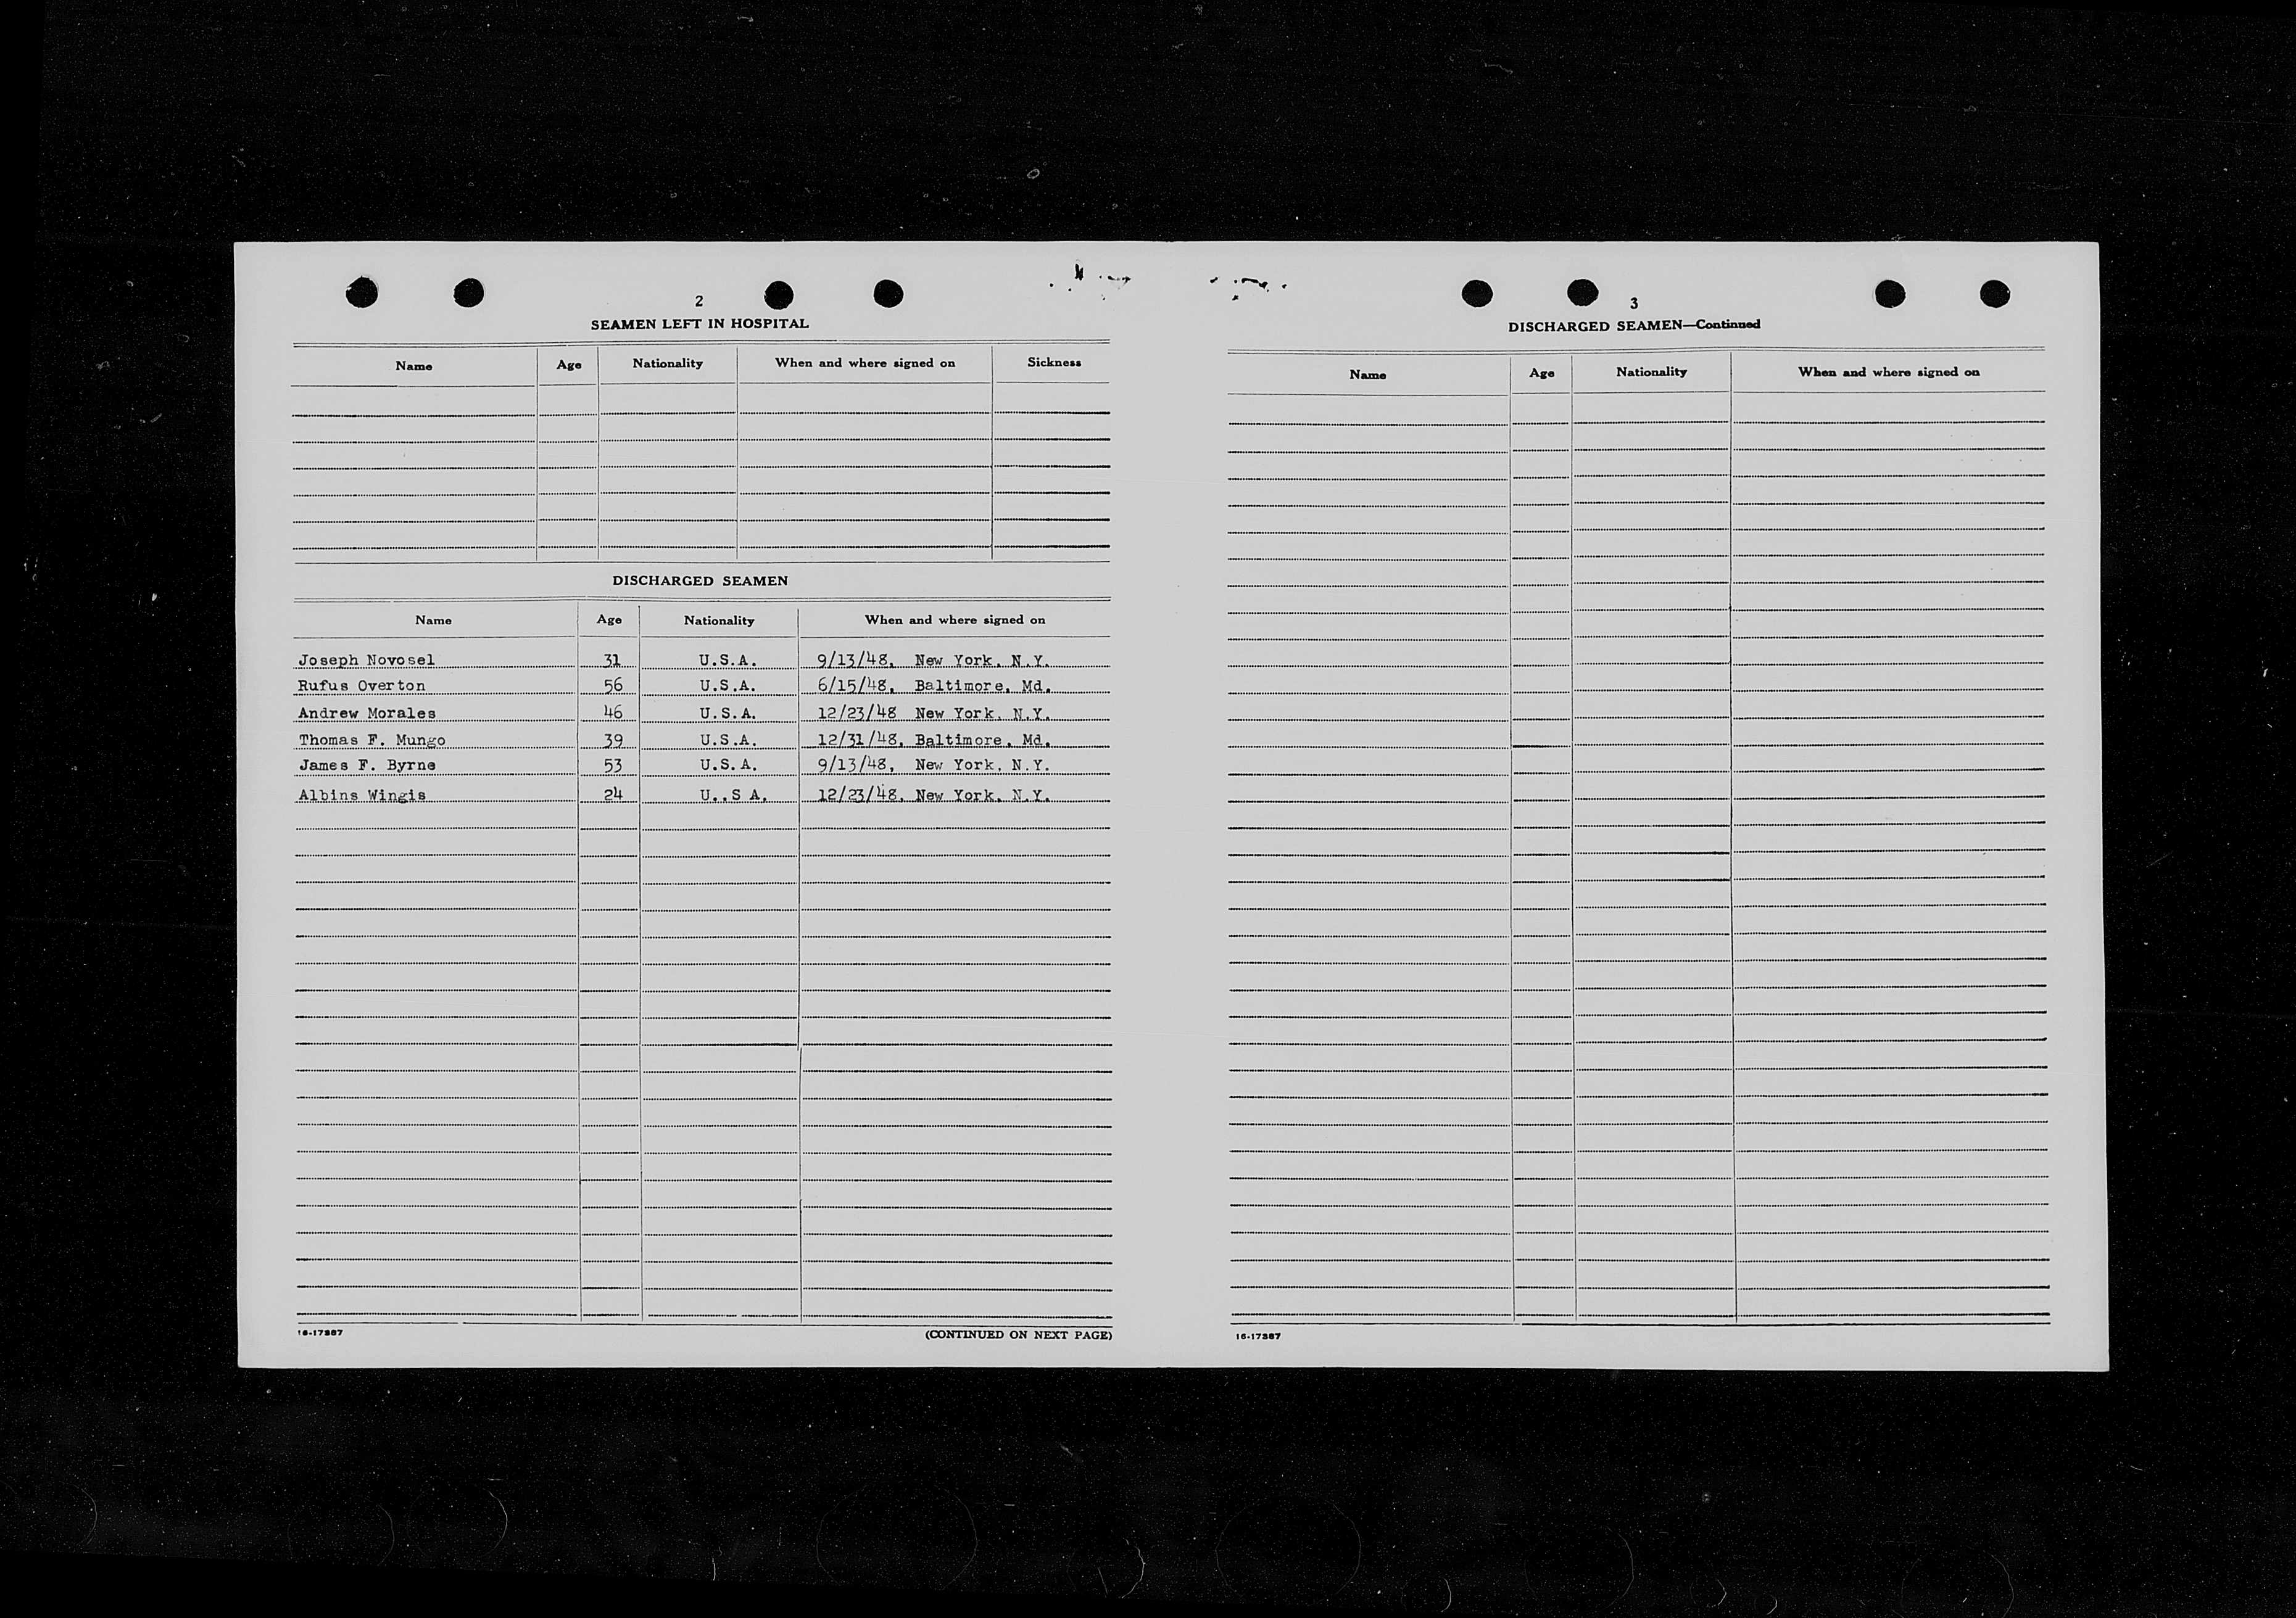 2
SEAMEN LEFT IN HOSPITAL
Name Age Nationality When and where signed on Sickness
DISCHARGED SEAMEN
Name Age Nationality When and where signed on
Joseph Novosel 31 U.S.A. 9/13/48, New York, N.Y.
Rufus Overton 56 U.S.A. 6/15/48, Baltimore, Md.
Andrew Morales 46 U.S.A. 12/23/48 New York, N.Y.
Thomas F. Mungo 39 U.S.A. 12/31/48, Baltimore, Md.
James F. Byrne 53 U.S.A. 9/13/48, New York, N.Y.
Albins Wingis 24 U..S A. 12/23/48, New York, N.Y.
16-17387 (CONTINUED ON NEXT PAGE)
3
DISCHARGED SEAMEN—Continued
Name Age Nationality When and where signed on
16-17387